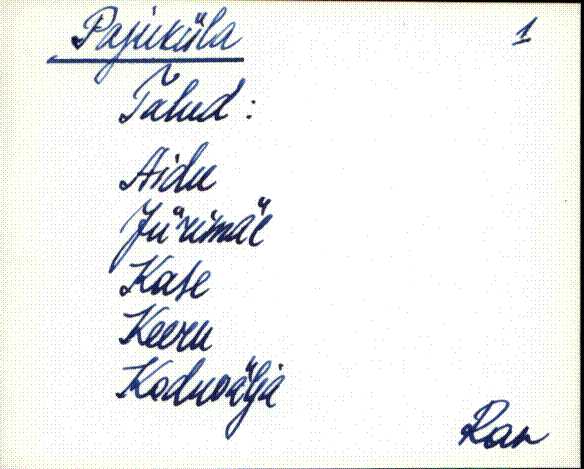 Pajuküla 1
Talud:
Aidu
Jürimäe
Kase
Keeru
Koduvälja
Ran